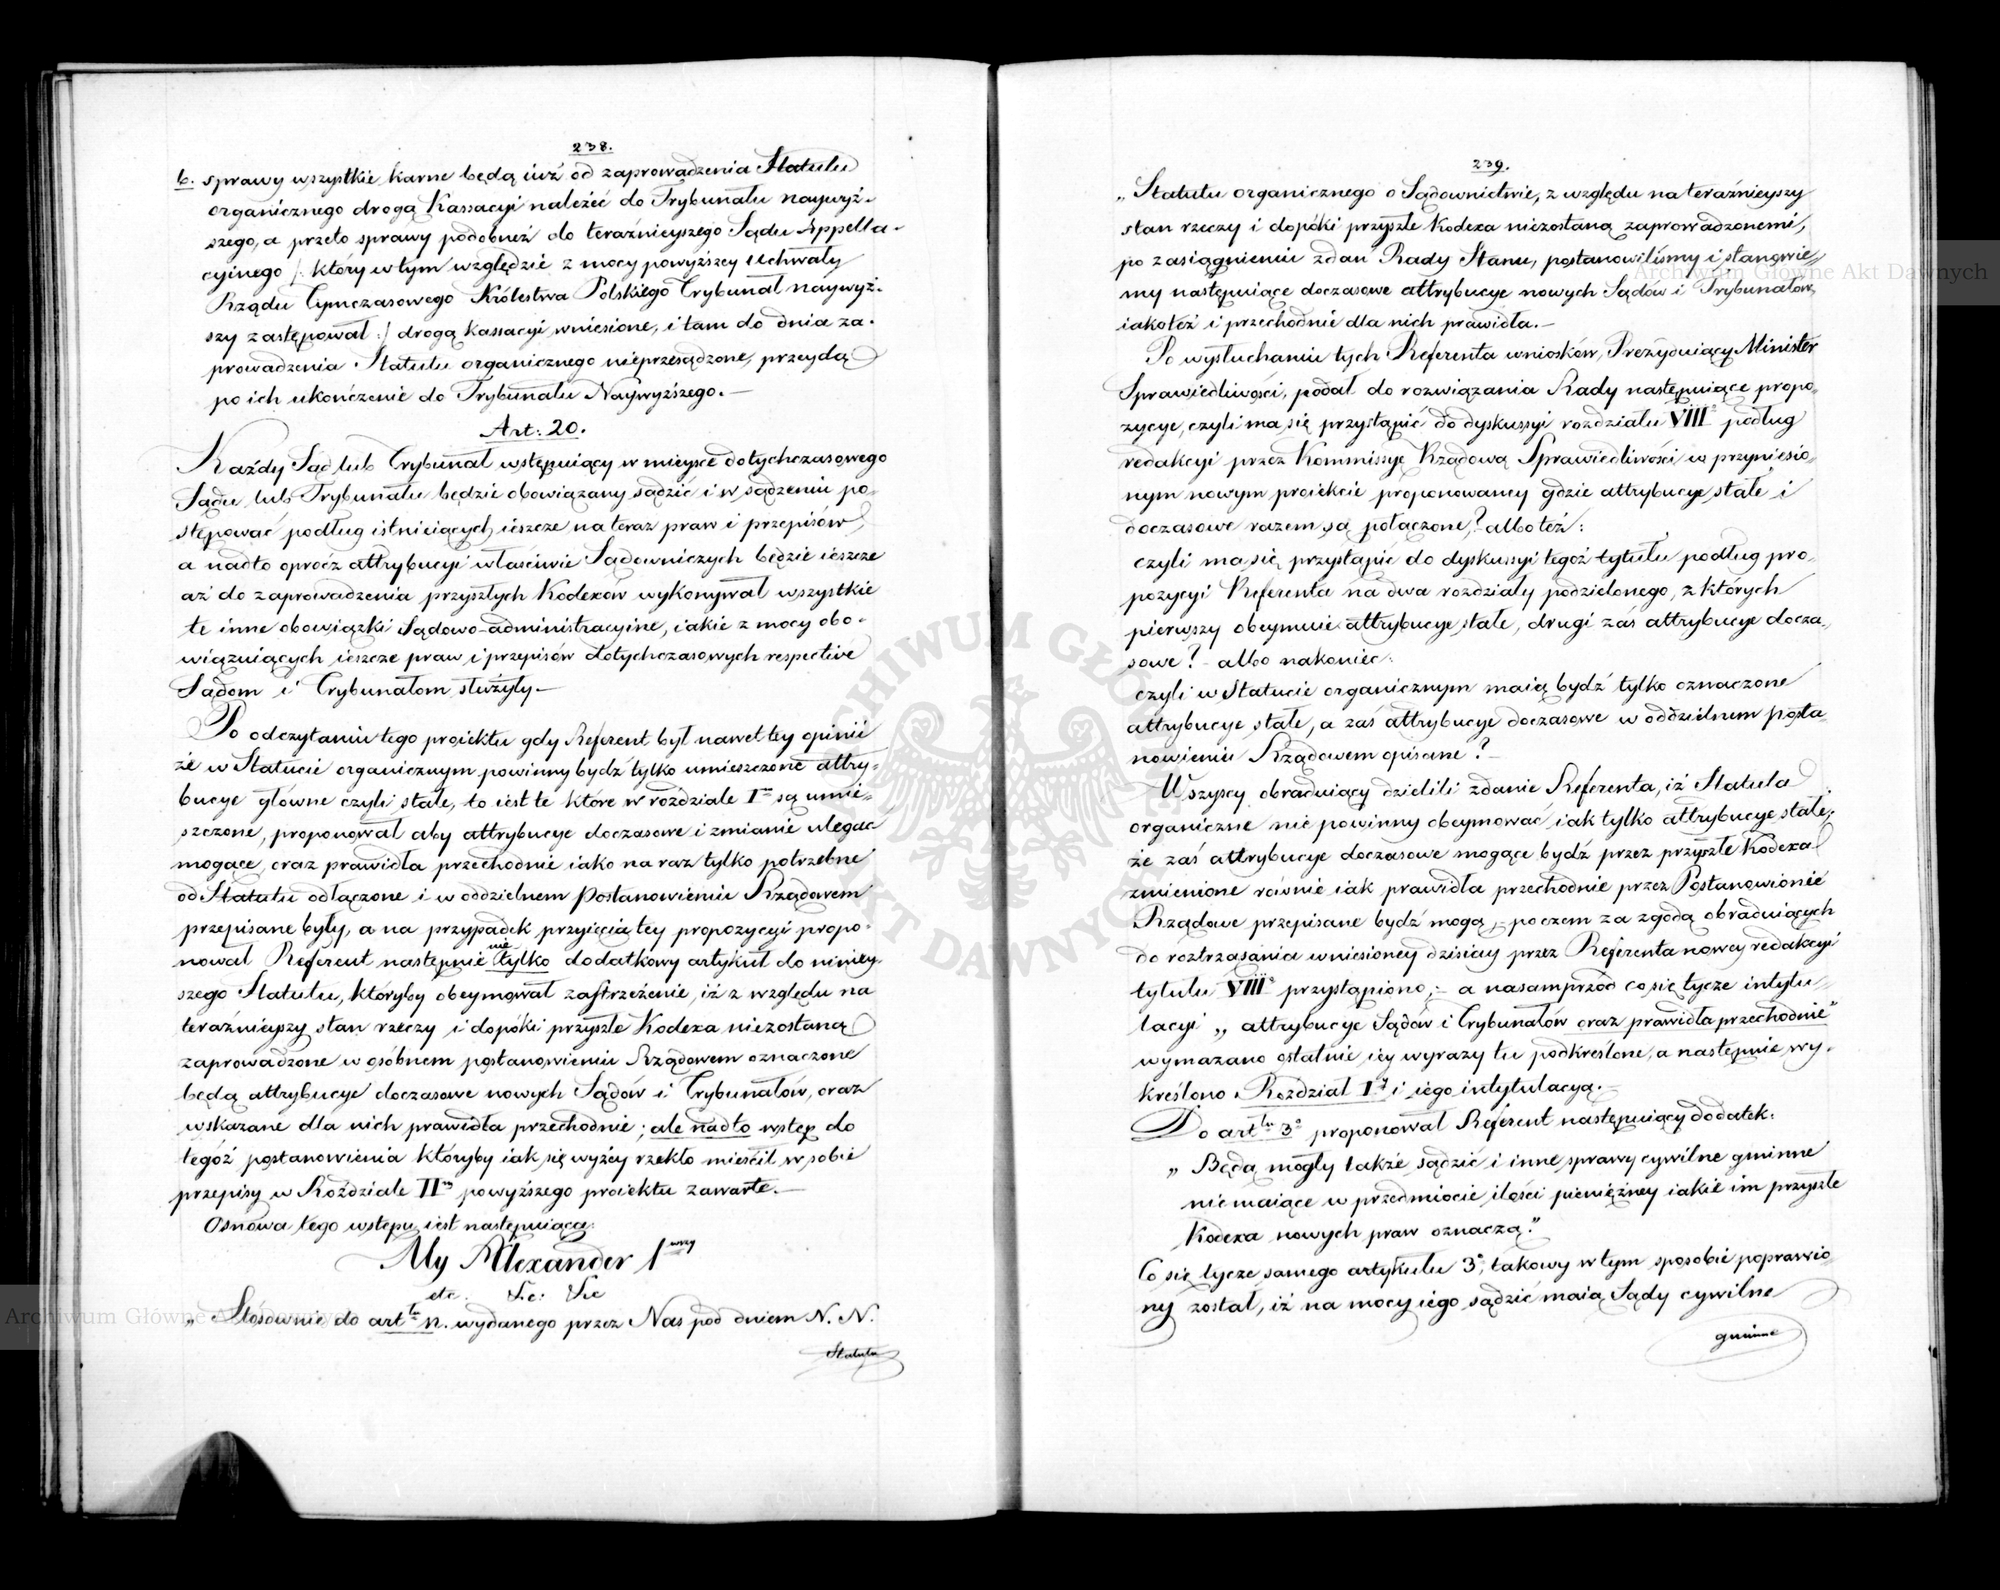 238.
b. sprawy wszystkie karne będą iuż od zaprowadzenia Statutu
organicznego drogą Kassacyi należeć do Trybunału naywyż-
szego, a przeto sprawy podobneż do teraźnieyszego Sądu Appella-
cyinego /: który w tym względzie z mocy powyższey Uchwały
Rządu Tymczasowego Królestwa Polskiego Trybunał naywyż-
szy zastępował :/ drogą Kassacyi wniesione, i tam do dnia za-
prowadzenia Statutu organicznego nieprzesądzone, przeydą
po ich ukończenie do Trybunału Naywyższego.—
Art: 20.
Każdy Sąd lub Trybunał wstępuiący w mieysce dotychczasowego
Sądu lub Trybunału będzie obowiązany sądzić i w sądzeniu po-
stępować podług istnieiących ieszcze na teraz praw i przepisów
a nadto oprócz attrybucyi właściwie Sądowniczych będzie ieszcze
aż do zaprowadzenia przyszłych Kodexów wykonywał wszystkie
te inne obowiązki Sądowo-administracyine, iakie z mocy obo-
wiązuiących ieszcze praw i przepisów dotychczasowych respective
Sądom i Trybunałom służyły.—
Po odczytaniu tego proiektu gdy Referent był nawet tey opinii
że w Statucie organicznym powinny bydź tylko umieszczone attry-
bucye główne czyli stałe, to iest te które w rozdziale I są umie-
szczone, proponował aby attrybucye doczasowe i zmianie ulegać
mogące, oraz prawidła przechodnie iako na raz tylko potrzebne
od Statutu odłączone i w oddzielnem Postanowieniu Rządowem
przepisane były, a na przypadek przyięcia tey propozycyi propo-
nował Referent następnie nie tylko dodatkowy artykuł do niniey-
szego Statutu, któryby obeymował zastrzeżenie, iż z względu na
teraźnieyszy stan rzeczy i dopóki przyszłe Kodexa niezostaną
zaprowadzone w osóbnem postanowieniu Rządowem oznaczone
będą attrybucye doczasowe nowych Sądów i Trybunałów, oraz
wskazane dla nich prawidła przechodnie; ale nadto wstęp do
tegóż postanowienia któryby iak się wyżey rzekło mieścił w sobie
przepisy w Rozdziale II powyższego proiektu zawarte.—
Osnowa tego wstępu iest następuiąca:
My Alexander 1wszy
etc. &c: &c
„Stósownie do artłu n. wydanego przez Nas pod dniem N. N.
Statutu
239.
„Statutu organicznego o Sądownictwie, z względu na teraźnieyszy
stan rzeczy i dopóki przyszłe Kodexa niezostaną zaprowadzonemi,
po zasiągnieniu zdań Rady Stanu, postanowiliśmy i stanowie-
my następuiące doczasowe attrybucye nowych Sądów i Trybunałów,
iakoteż i przechodnie dla nich prawidła.—
Po wysłuchaniu tych Referenta wniosków, Prezyduiący Minister
Sprawiedliwości, podał do rozwiązania Rady następuiące propo-
zycye, czyli ma się przystąpić do dyskussyi rozdziału VIIIo podług
redakcyi przez Kommissyę Rządową Sprawiedliwości w przyniesio-
nym nowym proiekcie proponowaney gdzie attrybucye stałe i
doczasowe razem są połączone? albo też:
czyli ma się przystąpić do dyskussyi tegoż tytułu podług pro-
pozycyi Referenta na dwa rozdziały podzielonego, z których
pierwszy obeymuie attrybucye stałe, drugi zaś attrybucye docza-
sowe? - albo nakoniec:
czyli w Statucie organicznym maią bydź tylko oznaczone
attrybucye stałe, a zaś attrybucye doczasowe w oddzielnem posta-
nowieniu Rządowem opisane? -
Wszyscy obraduiący dzielili zdanie Referenta, iż Statuta
organiczne nie powinny obeymować iak tylko attrybucye stałe;
że zaś attrybucye doczasowe mogące bydź przez przyszłe Kodexa
zmienione równie iak prawidła przechodnie przez Postanowienie
Rządowe przepisane bydź mogą,- poczem za zgodą obraduiących
do roztrząsania wniesioney dzisiay przez Referenta nowey redakcyi
tytułu VIIIo przystąpiono;- a nasamprzód co się tycze intytu-
lacyi „attrybucye Sądów i Trybunałów oraz prawidła przechodnie"
wymazano ostatnie iey wyrazy tu podkreślone, a następnie wy-
kreślono Rozdział Iy i iego intytulacyą.—
Do artłu 3o proponował Referent następuiący dodatek:
„Będą mogły także sądzić i inne sprawy cywilne gminne
nie maiące w przedmiocie ilości pieniężney iakie im przyszłe
Kodexa nowych praw oznaczą."
Co się tycze samego artykułu 3o, takowy w tym sposobie poprawio-
ny został, iż na mocy iego sądzić maią Sądy cywilne
gminne
Archiwum Główne Akt Dawnych
Archiwum Główne Akt Dawnych
ARCHIWUM GŁÓWNE AKT DAWNYCH